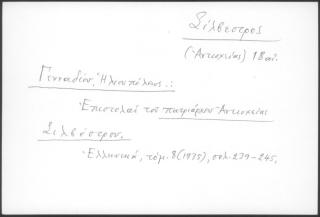 Σίλβεστρος
(Ἀντιοχείας) 18 αἰ.
Γενναδίου, Ἡλιουπόλεως.:
Ἐπιστολαὶ τοῦ πατριάρχου Ἀντιοχείας
Σιλβέστρου.
Ἑλληνικά, τόμ. 8 (1935), σελ. 239-245.